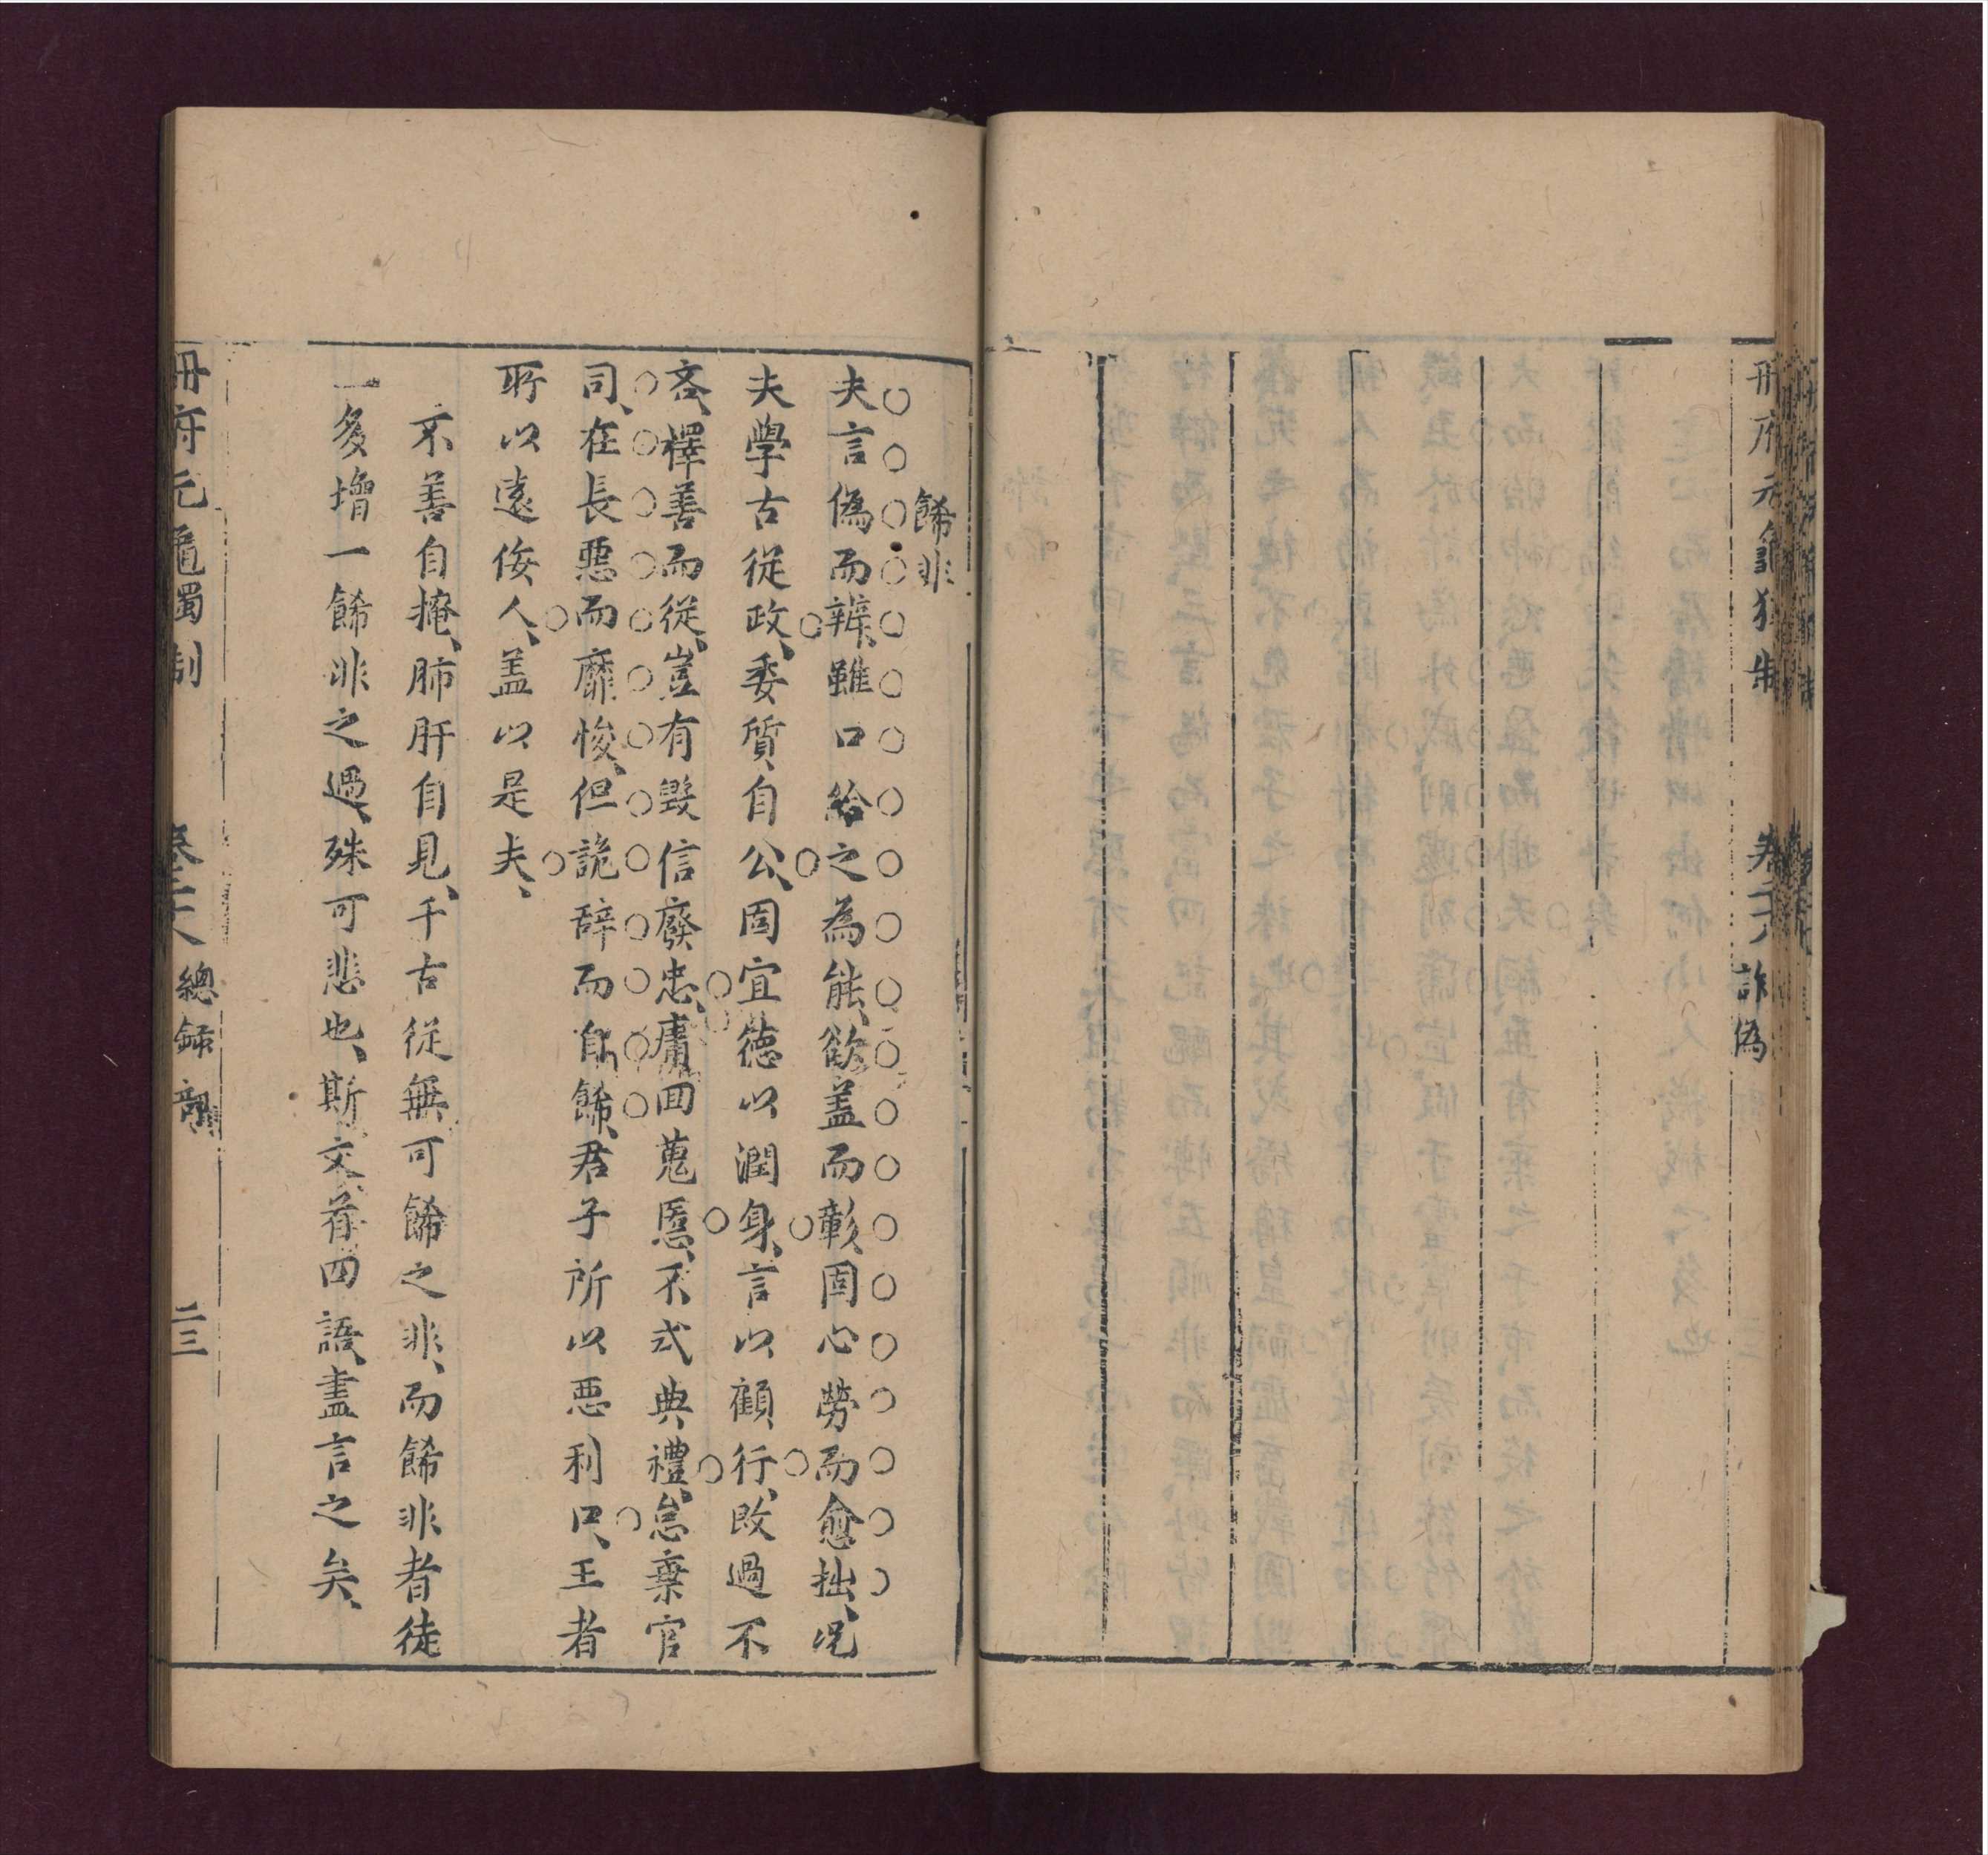 冊府元龜獨制 卷二六 詐偽
餙非
夫言偽而辨、雖口給之為能、欲盖而彰、固心勞而愈拙、况
夫學古從政、委質自公、固宜德以潤身、言以顧行、改過不
吝、擇善而從、豈有毀信廢忠、庸回蒐慝、不式典禮、怠棄官
司、在長惡而靡悛、但詭辞而自餙、君子所以惡利口、王者
所以遠侫人、盖以是夫、
不善自掩、肺肝自見、千古從無可餙之非、而餙非者徒
一多增一餙非之過、殊可悲也、斯文首四語、盡言之矣、
冊府元龜獨制 卷二六 總錄部 二三